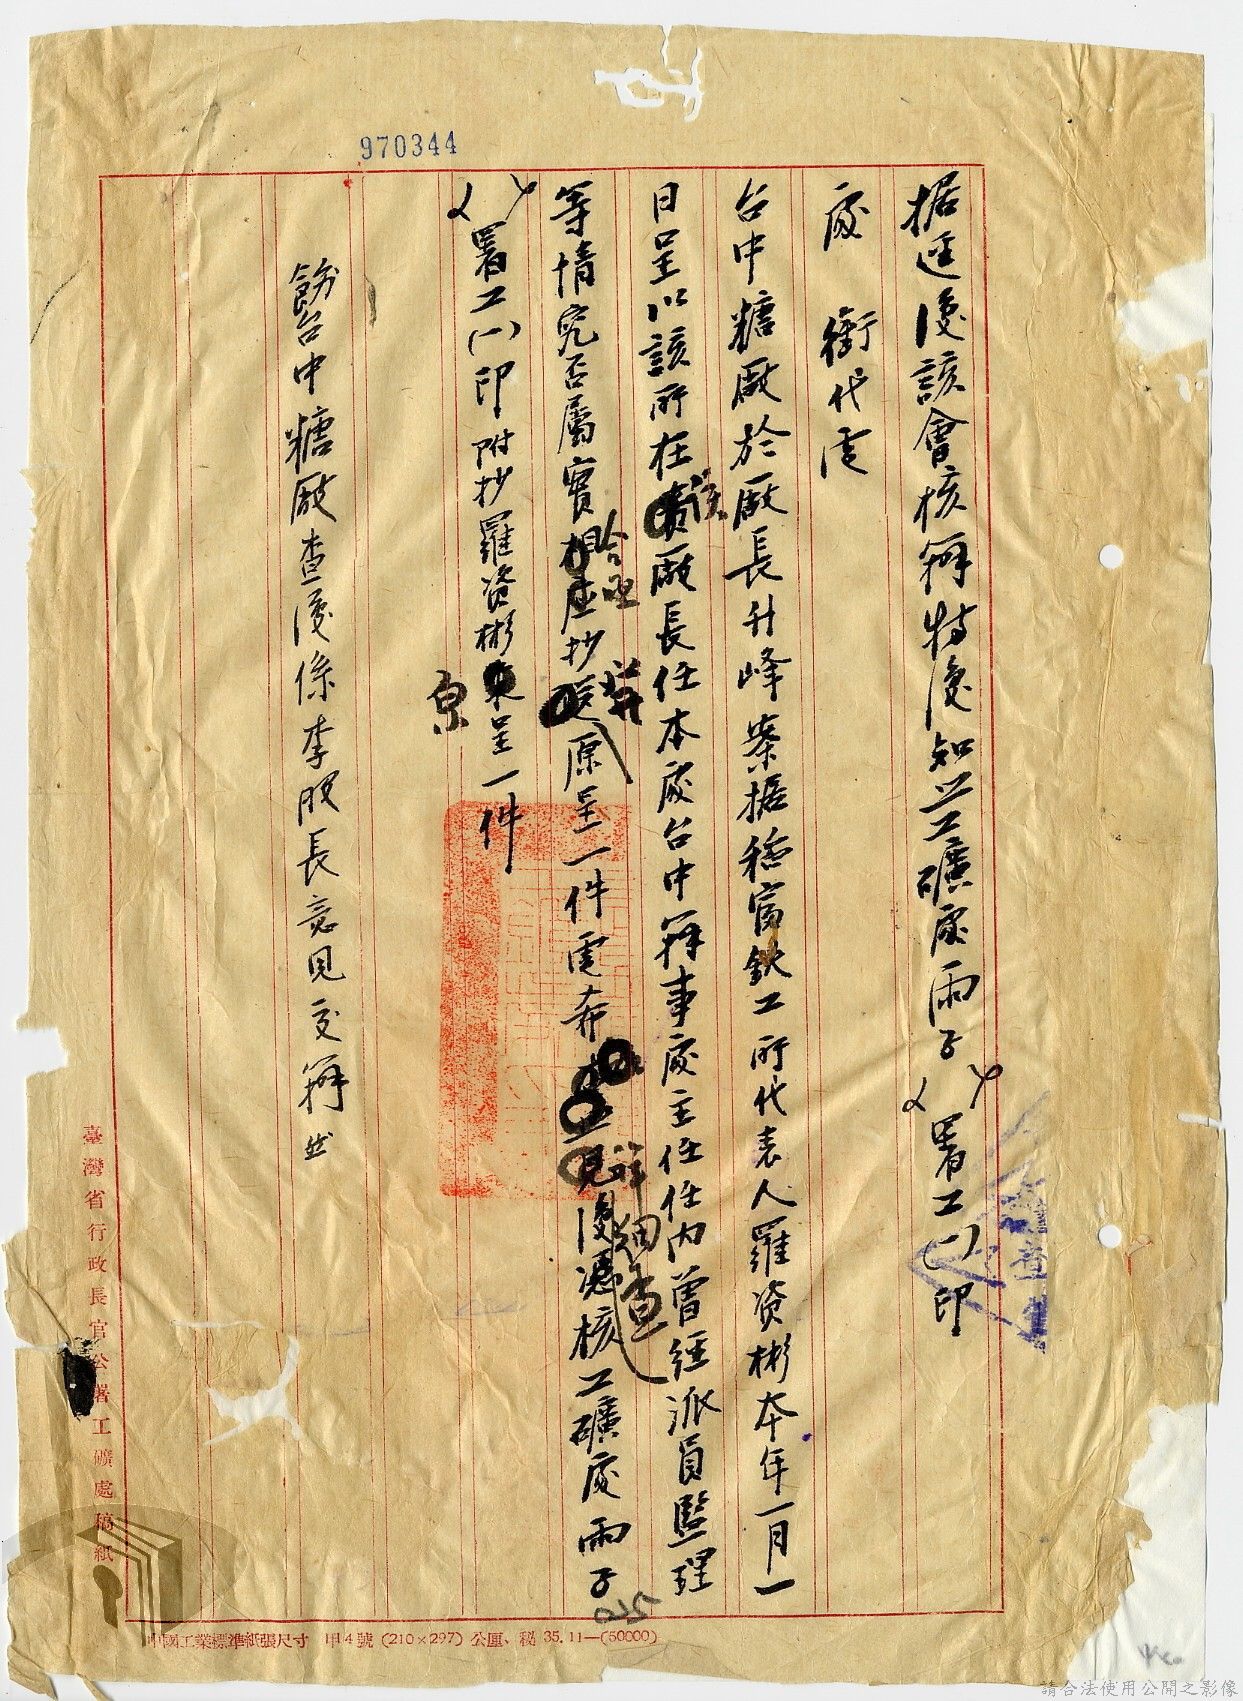 970344
据逕復該會核辦特復知照工礦處雨子 署工(一)印
處銜代電
台中糖廠於廠長升峰案据穗富鉄工所代表人羅资彬本年一月一
日呈以該所在貴廠長任本處台中辦事處主任任內曾經派員監理
等情究否屬實相应抄送原呈一件電希見復憑核工礦處雨子
合亟
并
詳細查
署工(一)印附抄羅资彬來呈一件
原
飭台中糖廠查復係李股長意見交辦
臺灣省行政長官公署工礦處稿紙
中國工業標準紙張尺寸 甲4號(210×297)公厘、秘 35.11—(50000)
請合法使用公開之影像